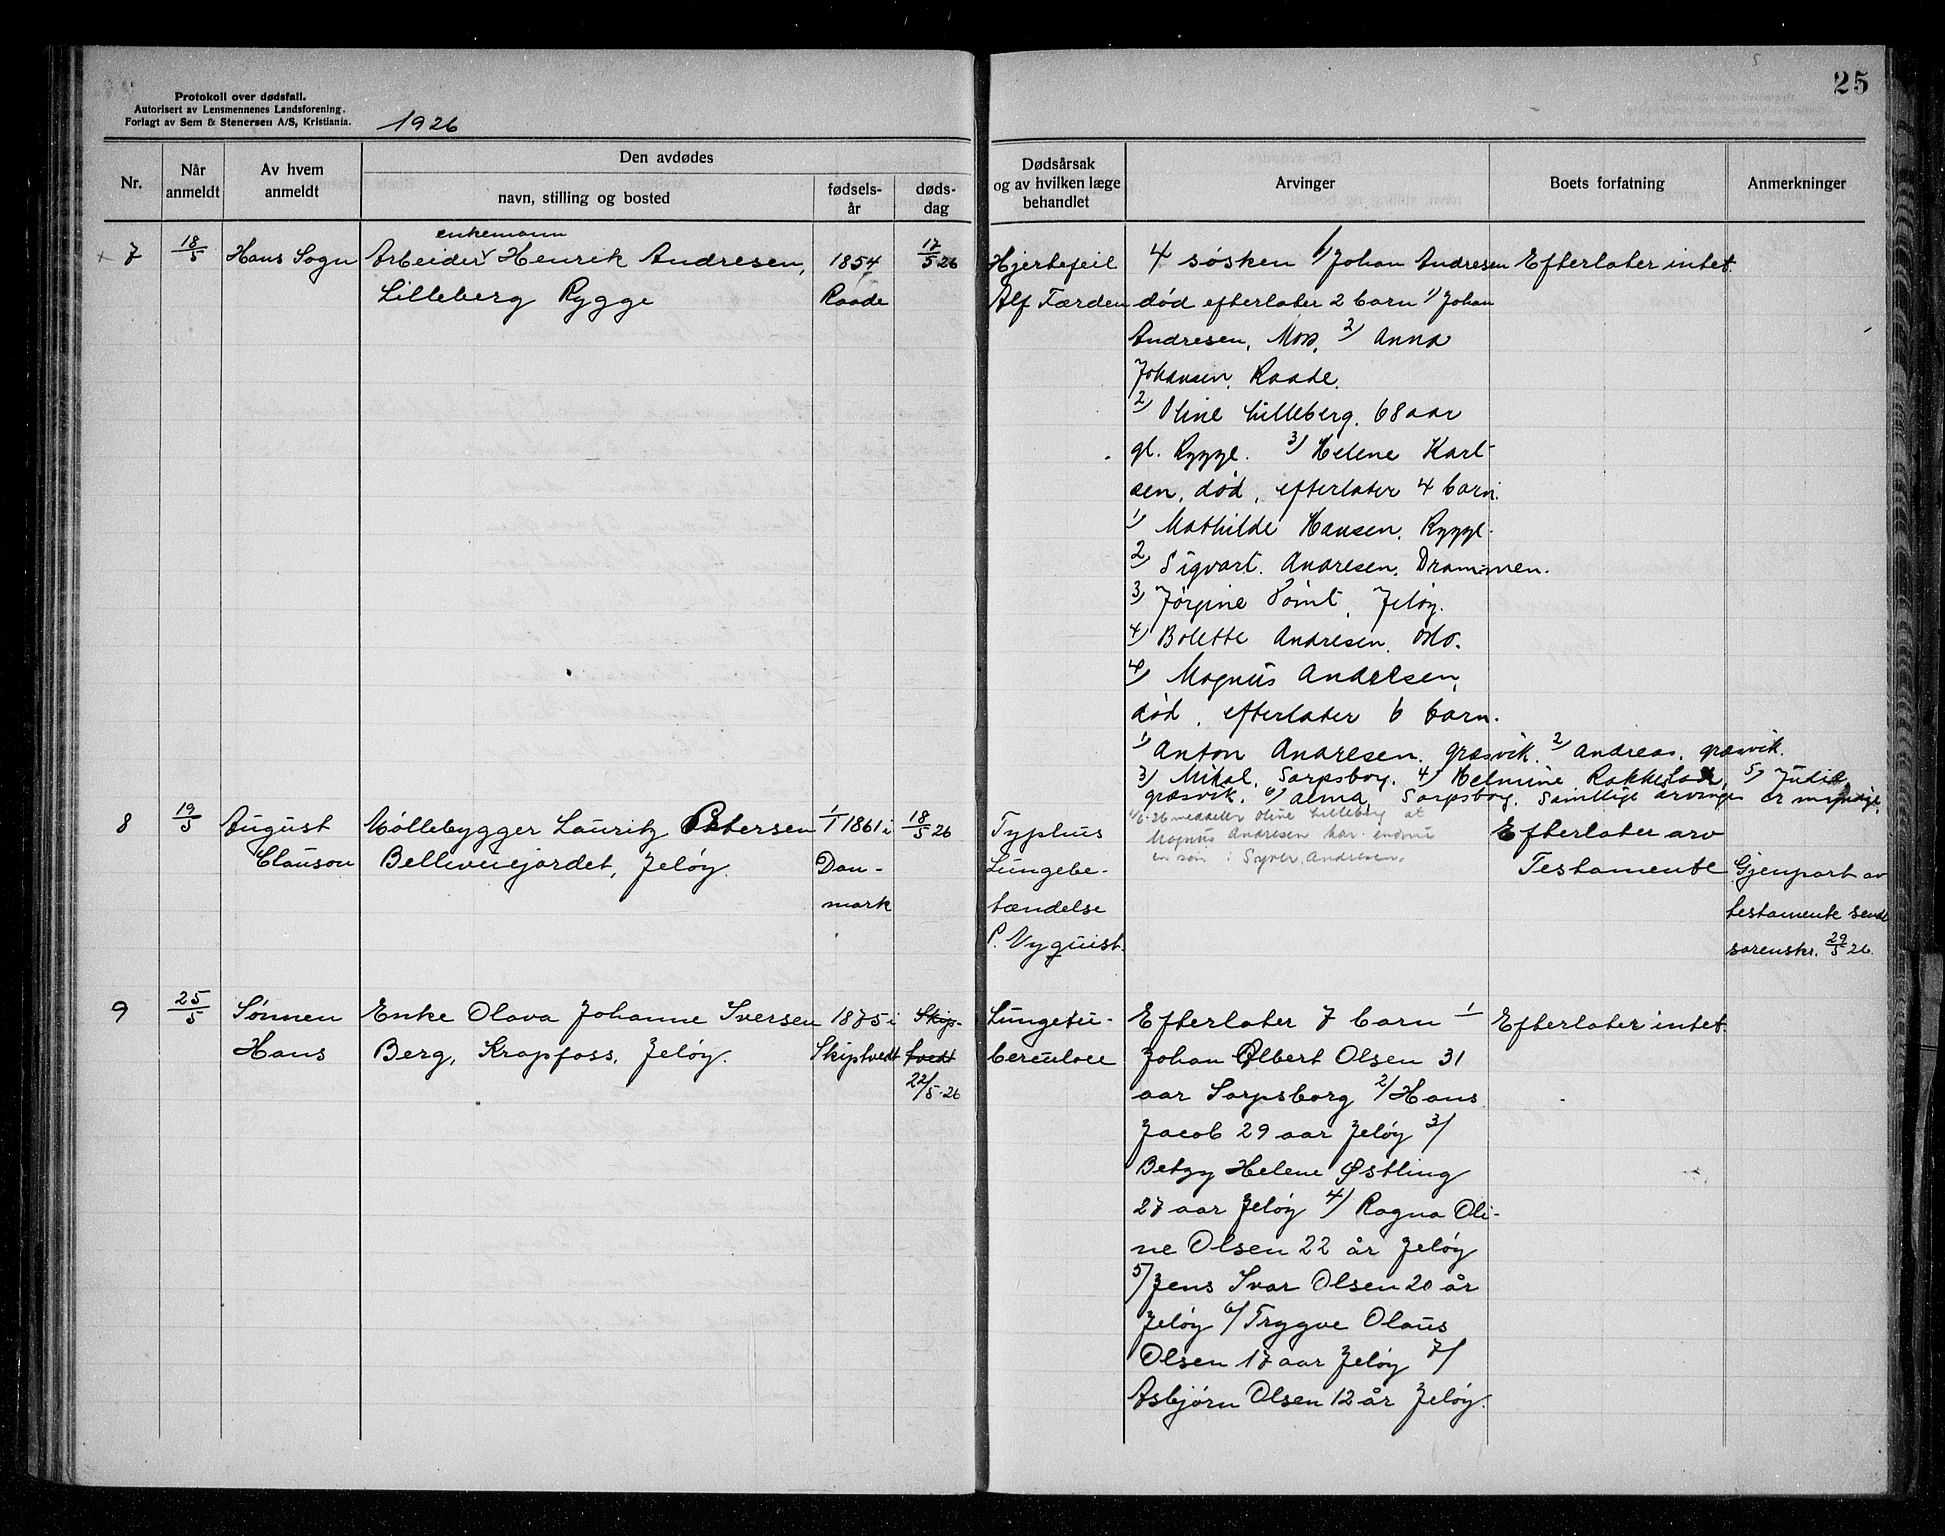 25
Protokoll over dødsfall.
Autorisert av Lensmennenes Landsforening.
Forlagt av Sem & Stenersen A/S, Kristiania.
1926
Nr.
Når anmeldt
Av hvem anmeldt
Den avdødes
navn, stilling og bosted
fødsels-år
døds-dag
Dødsårsak
og av hvilken læge
behandlet
Arvinger
Boets forfatning
Anmerkninger
7
18/5
Hans Sogn
enkemann
Arbeider Henrik Andresen,
Lilleberg Rygge
1854
Raade
17/5 26
Hjertefeil
Alf Færden
4 søsken 1/ Johan Andresen
død efterlater 2 barn 1/ Johan
Andresen, Moss, 2/ Anna
Johansen, Raade.
2/ Oline Lilleberg. 68 aar
gl. Rygge. 3/ Helene Karl-
sen, død, efterlater 4 barn.
1/ Mathilde Hansen, Rygge.
2/ Sigvart Andresen, Drammen.
3/ Jørgine Tomt, Jeløy.
4/ Bolette Andresen, Oslo.
4/ Magnus Andresen,
død, efterlater 6 barn.
1/ Anton Andresen. Græsvik. 2/ Andreas, Græsvik.
3/ Mikal, Sarpsborg. 4/ Helmine 5/ Judit,
Græsvik. 6/ Alma, Sarpsborg. Samtlige arvinger er myndige.
1/6-26 meddeler Oline Lilleberg at
Magnus Andresen har endnu
en søn : Syver Andresen.
Efterlater intet
8
19/5
August
Clauson
Møllebygger Lauritz Petersen
Belleveuejordet, Jeløy.
1/1 1861 i
Dan-
mark
18/5 26
Typhus
Lungebe-
tændelse
P. Nyquist.
Efterlater arv
Testamente
Gjenpart av
testamente sendt
sorenskr. 29/5 26.
9
25/5
Sønnen
Hans
Enke Olava Johanne Iversen
Berg, Krapfoss, Jeløy.
1875 i
Skiptvedt
Skip-
tvedt
22/5-26
Lungetu-
berculose
Efterlater 7 barn 1/
Johan Albert Olsen 31
aar Sarpsborg 2/ Hans
Jacob 29 aar Jeløy 3/
Betzy Helene Østling
27 aar Jeløy 4/ Ragna Oli-
ne Olsen 22 år Jeløy
5/ Jens Ivar Olsen 20 år
Jeløy 6/ Trygve Olaus
Olsen 17 aar Jeløy 7/
Asbjørn Olsen 12 år Jeløy.
Efterlater intet